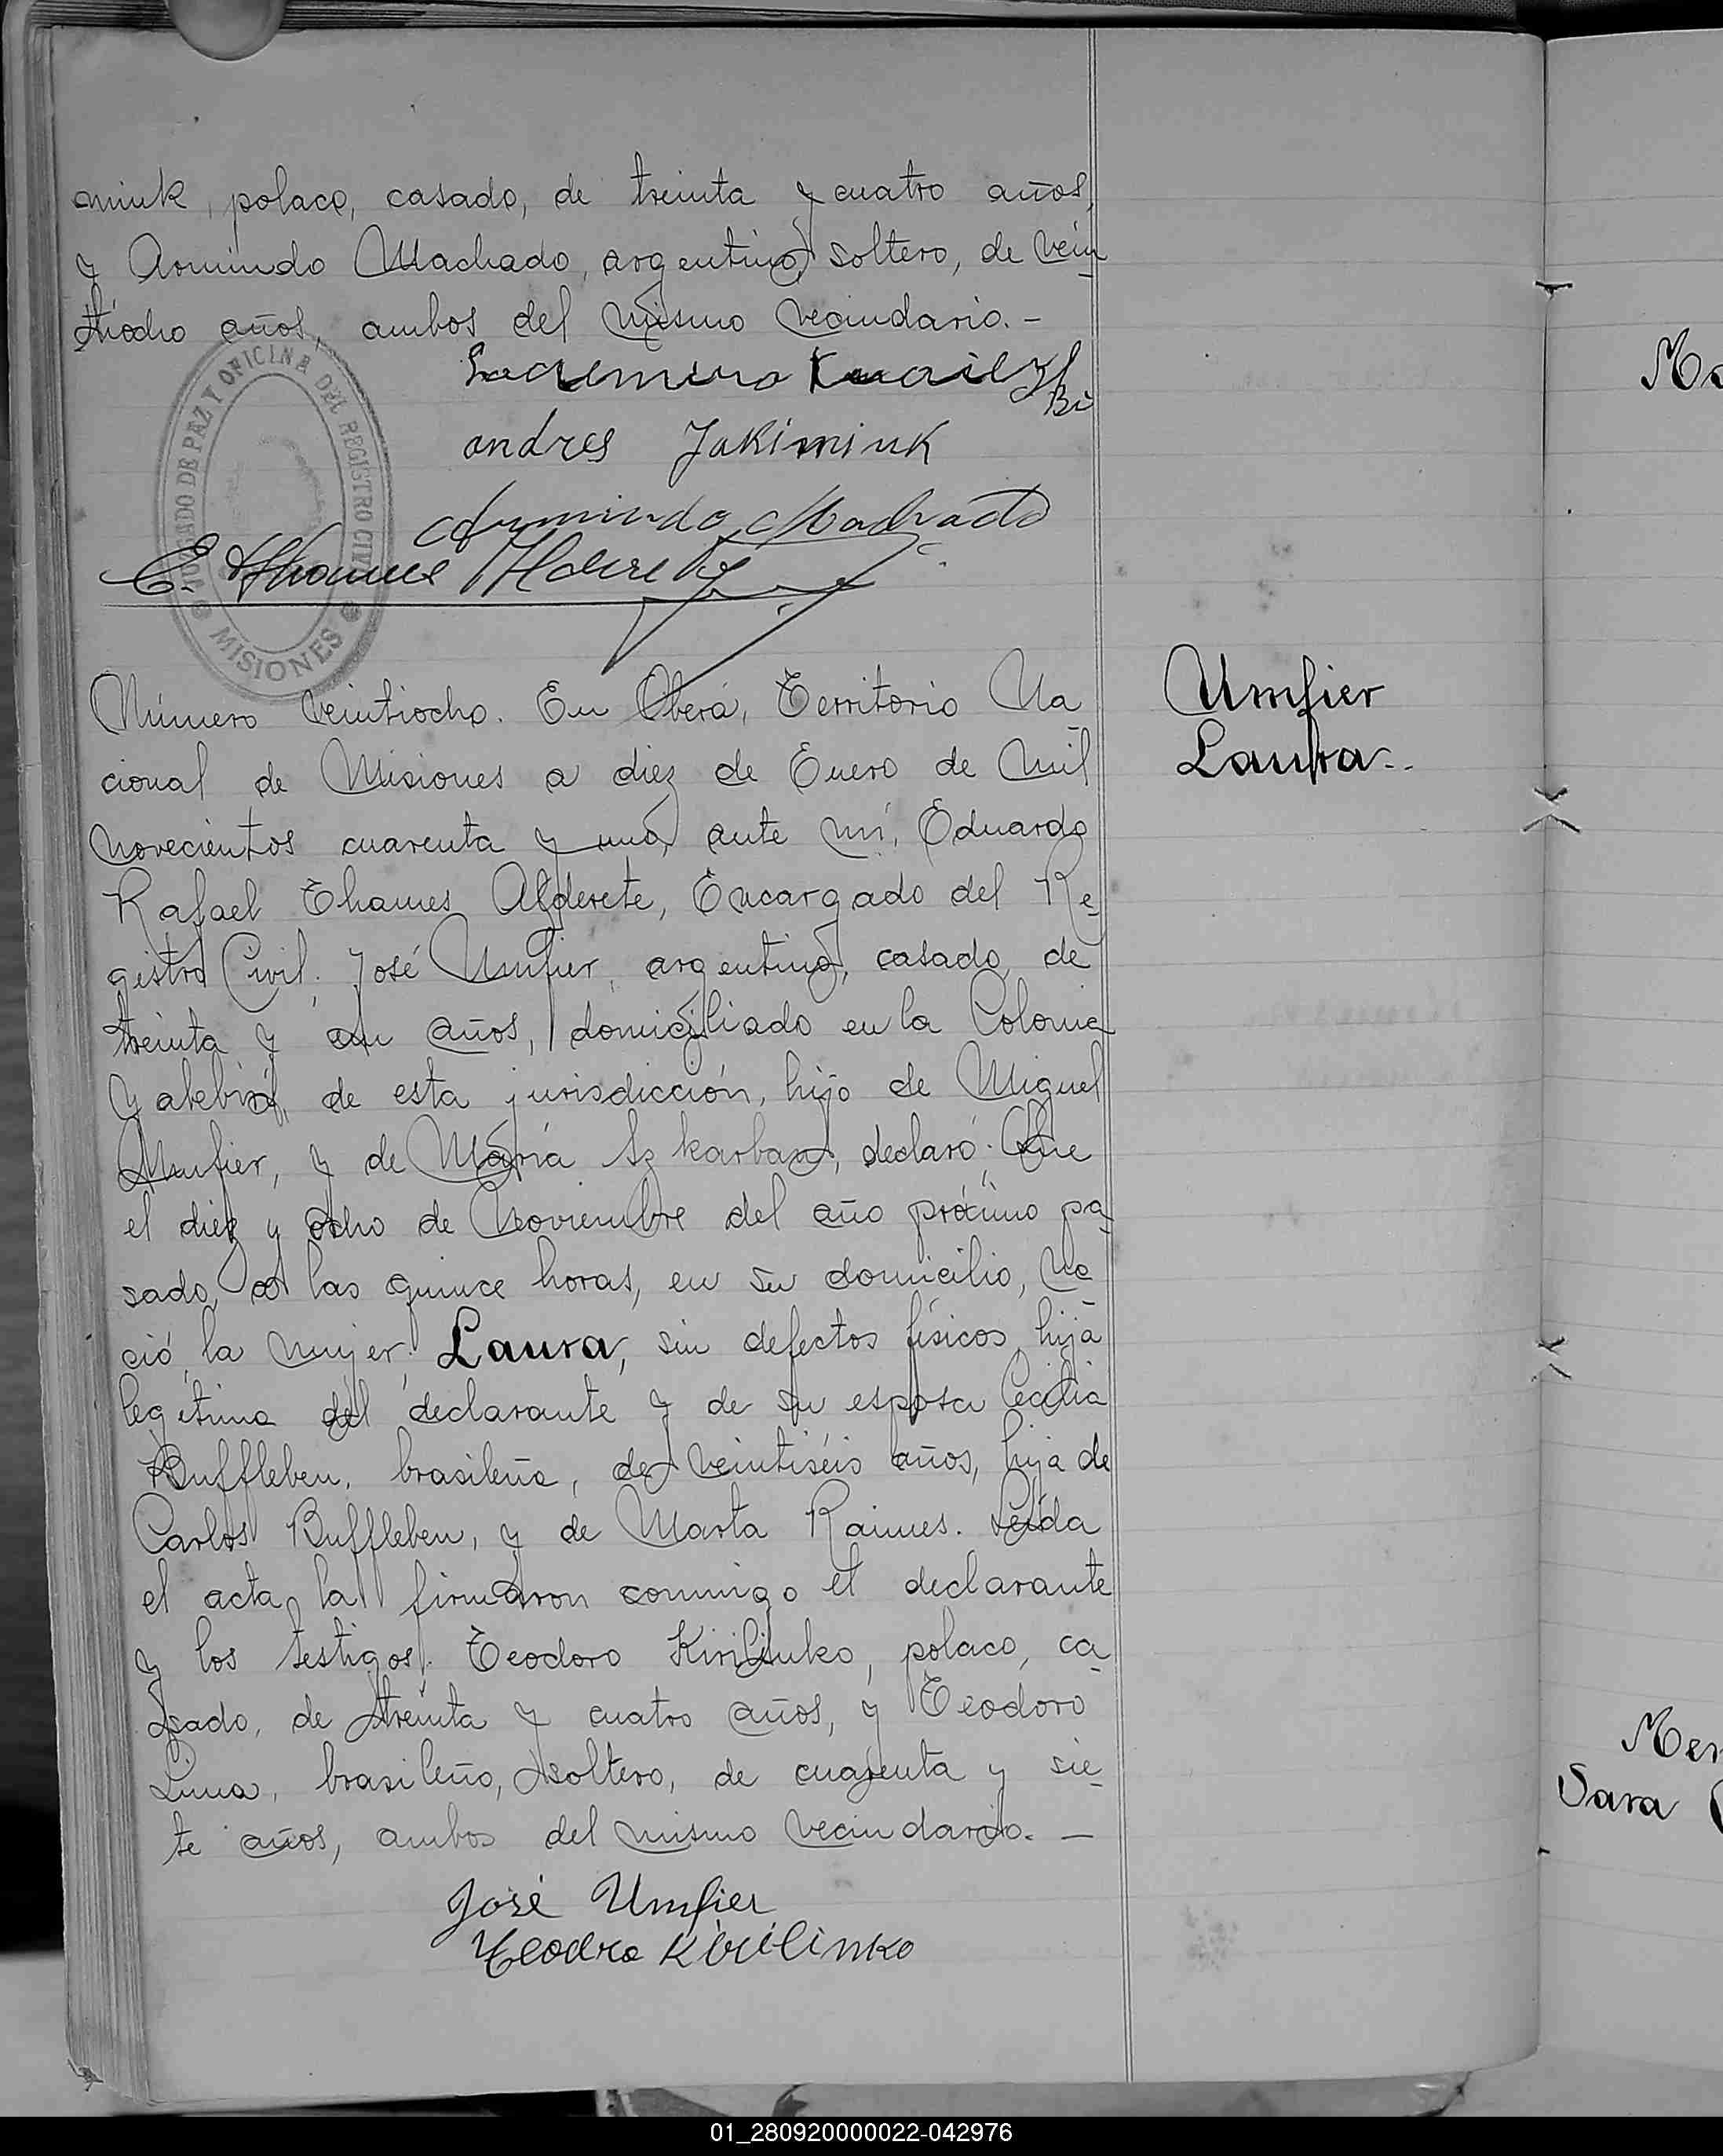 miuk, polaco, casado, de treinta y cuatro años,
y Armindo Machado, argentino, soltero, de vein
tiocho años, ambos del mismo vecindario.-
andres Jakimiuk
Armindo Machado
E. Thames Alderete
JUZGADO DE PAZ Y OFICINA DEL REGISTRO CIVIL
MISIONES
Número veintiocho. En Oberá, Territorio Na
cional de Misiones a diez de Enero de mil
novecientos cuarenta y uno, ante mí, Eduardo
Rafael Thames Alderete, Encargado del Re
gistro Civil; José Umfier, argentino, casado, de
treinta y un años, domiciliado en la Colonia
Yabebirí, de esta jurisdicción, hijo de Miguel
Umfier, y de María Szkarban, declaró: Que
el diez y ocho de Noviembre del año próximo pa
sado, a las quince horas, en su domicilio, na
ció la mujer: Laura, sin defectos físicos, hija
legítima del declarante y de su esposa Cecilia
Buffleben, brasileña, de veintiséis años, hija de
Carlos Buffleben, y de Marta Raimes. Leída
el acta, la firmaron conmigo el declarante
y los testigos: Teodoro Kirilinko, polaco, ca
sado, de treinta y cuatro años, y Teodoro
Lima, brasileño, soltero, de cuarenta y sie
te años, ambos del mismo vecindario. —
José Umfier
Teodro Kirilinko
Umfier
Laura..
Sara
01_280920000022-042976